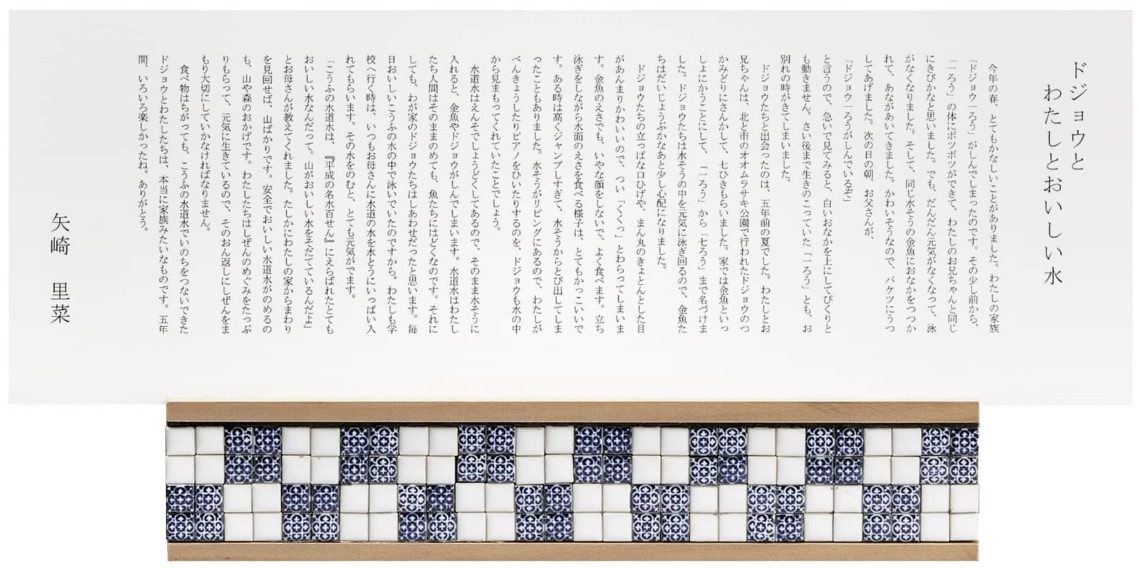 ドジョウと
わたしとおいしい水
今年の春、とてもかなしいことがありました。わたしの家族
「ドジョウ一ろう」がしんでしまったのです。その少し前から、
「一ろう」の体にポツポツができて、わたしのお兄ちゃんと同じ
にきびかなと思いました。でも、だんだん元気がなくなって、泳
がなくなりました。そして、同じ水そうの金魚におなかをつつか
れて、あながあいてきました。かわいそうなので、バケツにうつ
してあげました。次の日の朝、お父さんが、
「ドジョウ一ろうがしんでいるぞ」
と言うので、急いで見てみると、白いおなかを上にしてぴくりと
も動きません。さい後まで生きのこっていた「一ろう」とも、お
別れの時がきてしまいました。
ドジョウたちと出会ったのは、五年前の夏でした。わたしとお
兄ちゃんは、北と市のオオムラサキ公園で行われたドジョウのつ
かみどりにさんかして、七ひきもらいました。家では金魚といっ
しょにかうことにして、「一ろう」から「七ろう」まで名づけま
した。ドジョウたちは水そうの中を元気に泳ぎ回るので、金魚た
ちはだいじょうぶかなあと少し心配になりました。
ドジョウたちの立っぱな口ひげや、まん丸のきょとんとした目
があんまりかわいいので、つい「くくっ」とわらってしまいま
す。金魚のえさでも、いやな顔をしないで、よく食べます。立ち
泳ぎをしながら水面のえさを食べる様子は、とてもかっこいいで
す。ある時は高くジャンプしすぎて、水そうからとび出してしま
ったこともありました。水そうがリビングにあるので、わたしが
べんきょうしたりピアノをひいたりするのを、ドジョウも水の中
から見まもってくれていたことでしょう。
水道水はえんそでしょうどくしてあるので、そのまま水そうに
入れると、金魚やドジョウがしんでしまいます。水道水はわたし
たち人間はそのままのめても、魚たちにはどくなのです。それに
しても、わが家のドジョウたちはしあわせだったと思います。毎
日おいしいこうふの水の中で泳いでいたのですから。わたしも学
校へ行く時は、いつもお母さんに水道の水を水とうにいっぱい入
れてもらいます。その水をのむと、とても元気がでます。
「こうふの水道水は、『平成の名水百せん』にえらばれたとても
おいしい水なんだって。山がおいしい水をそだてているんだよ」
とお母さんが教えてくれました。たしかにわたしの家からまわり
を見回せば、山ばかりです。安全でおいしい水道水がのめるの
も、山や森のおかげです。わたしたちはしぜんのめぐみをたっぷ
りもらって、元気に生きているので、そのお返しにしぜんをま
もり大切にしていかなければなりません。
食べ物はちがっても、こうふの水道水でいのちをつないできた
ドジョウとわたしたちは、本当に家族みたいなものです。五年
間、いろいろ楽しかったね。ありがとう。
矢崎 里菜